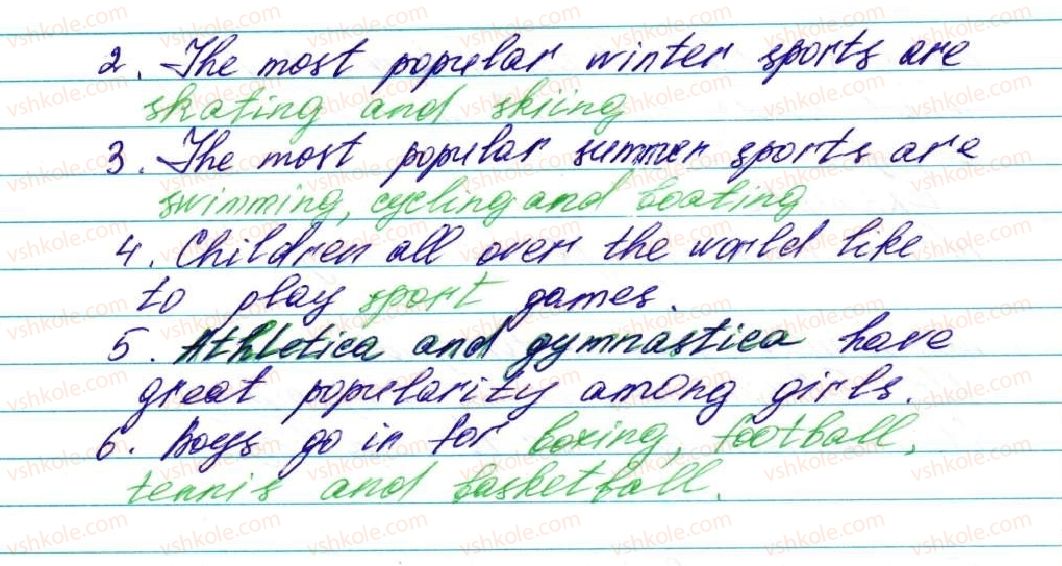 2. The most popular winter sports are
skating and skiing
3. The most popular summer sports are
swimming, cycling and boating
4. Children all over the world like
to play sport games.
5. Athletica and gymnastica have
great popularity among girls.
6. Boys go in for boxing, football,
tennis and basketball.